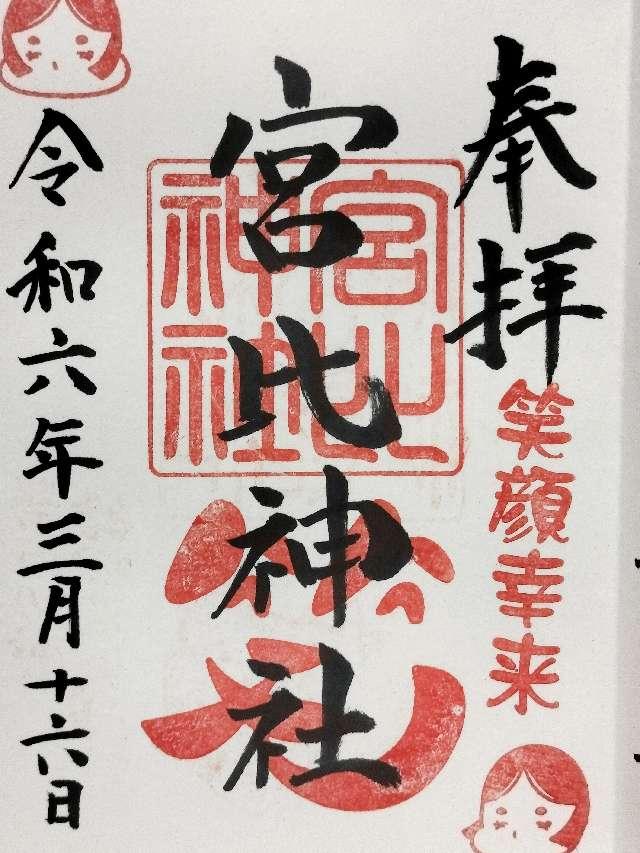 奉拝
笑顔幸来
宮比神社
宮比神社
令和六年三月十六日